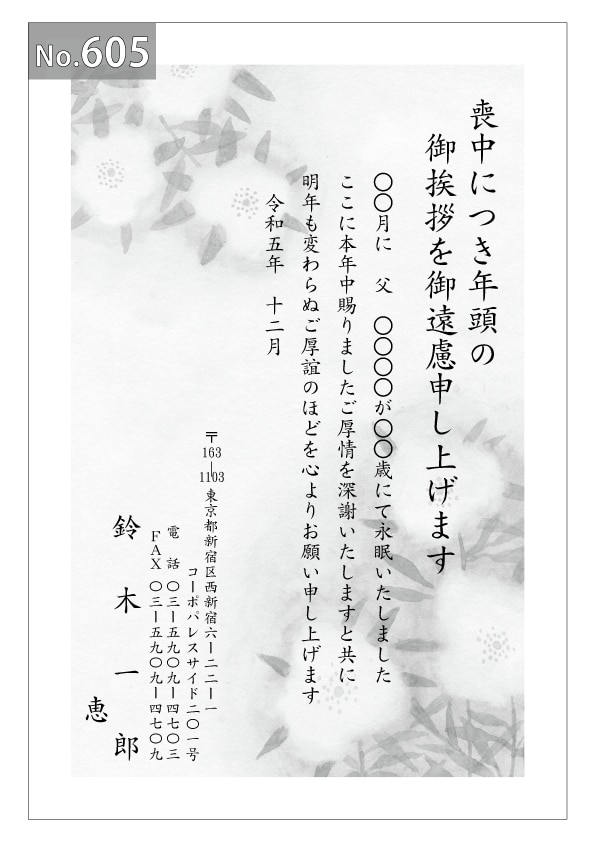 No.605
喪中につき年頭の
御挨拶を御遠慮申し上げます
〇〇月に　父　〇〇〇〇が〇〇歳にて永眠いたしました
ここに本年中賜りましたご厚情を深謝いたしますと共に
明年も変わらぬご厚誼のほどを心よりお願い申し上げます
令和五年　十二月
〒163―1103 東京都新宿区西新宿六ー二二ー一
コーポパレスサイド二〇一号
電　話 〇三ー五九〇九ー四七〇三
ＦＡＸ 〇三ー五九〇九ー四七〇九
鈴木一郎
恵